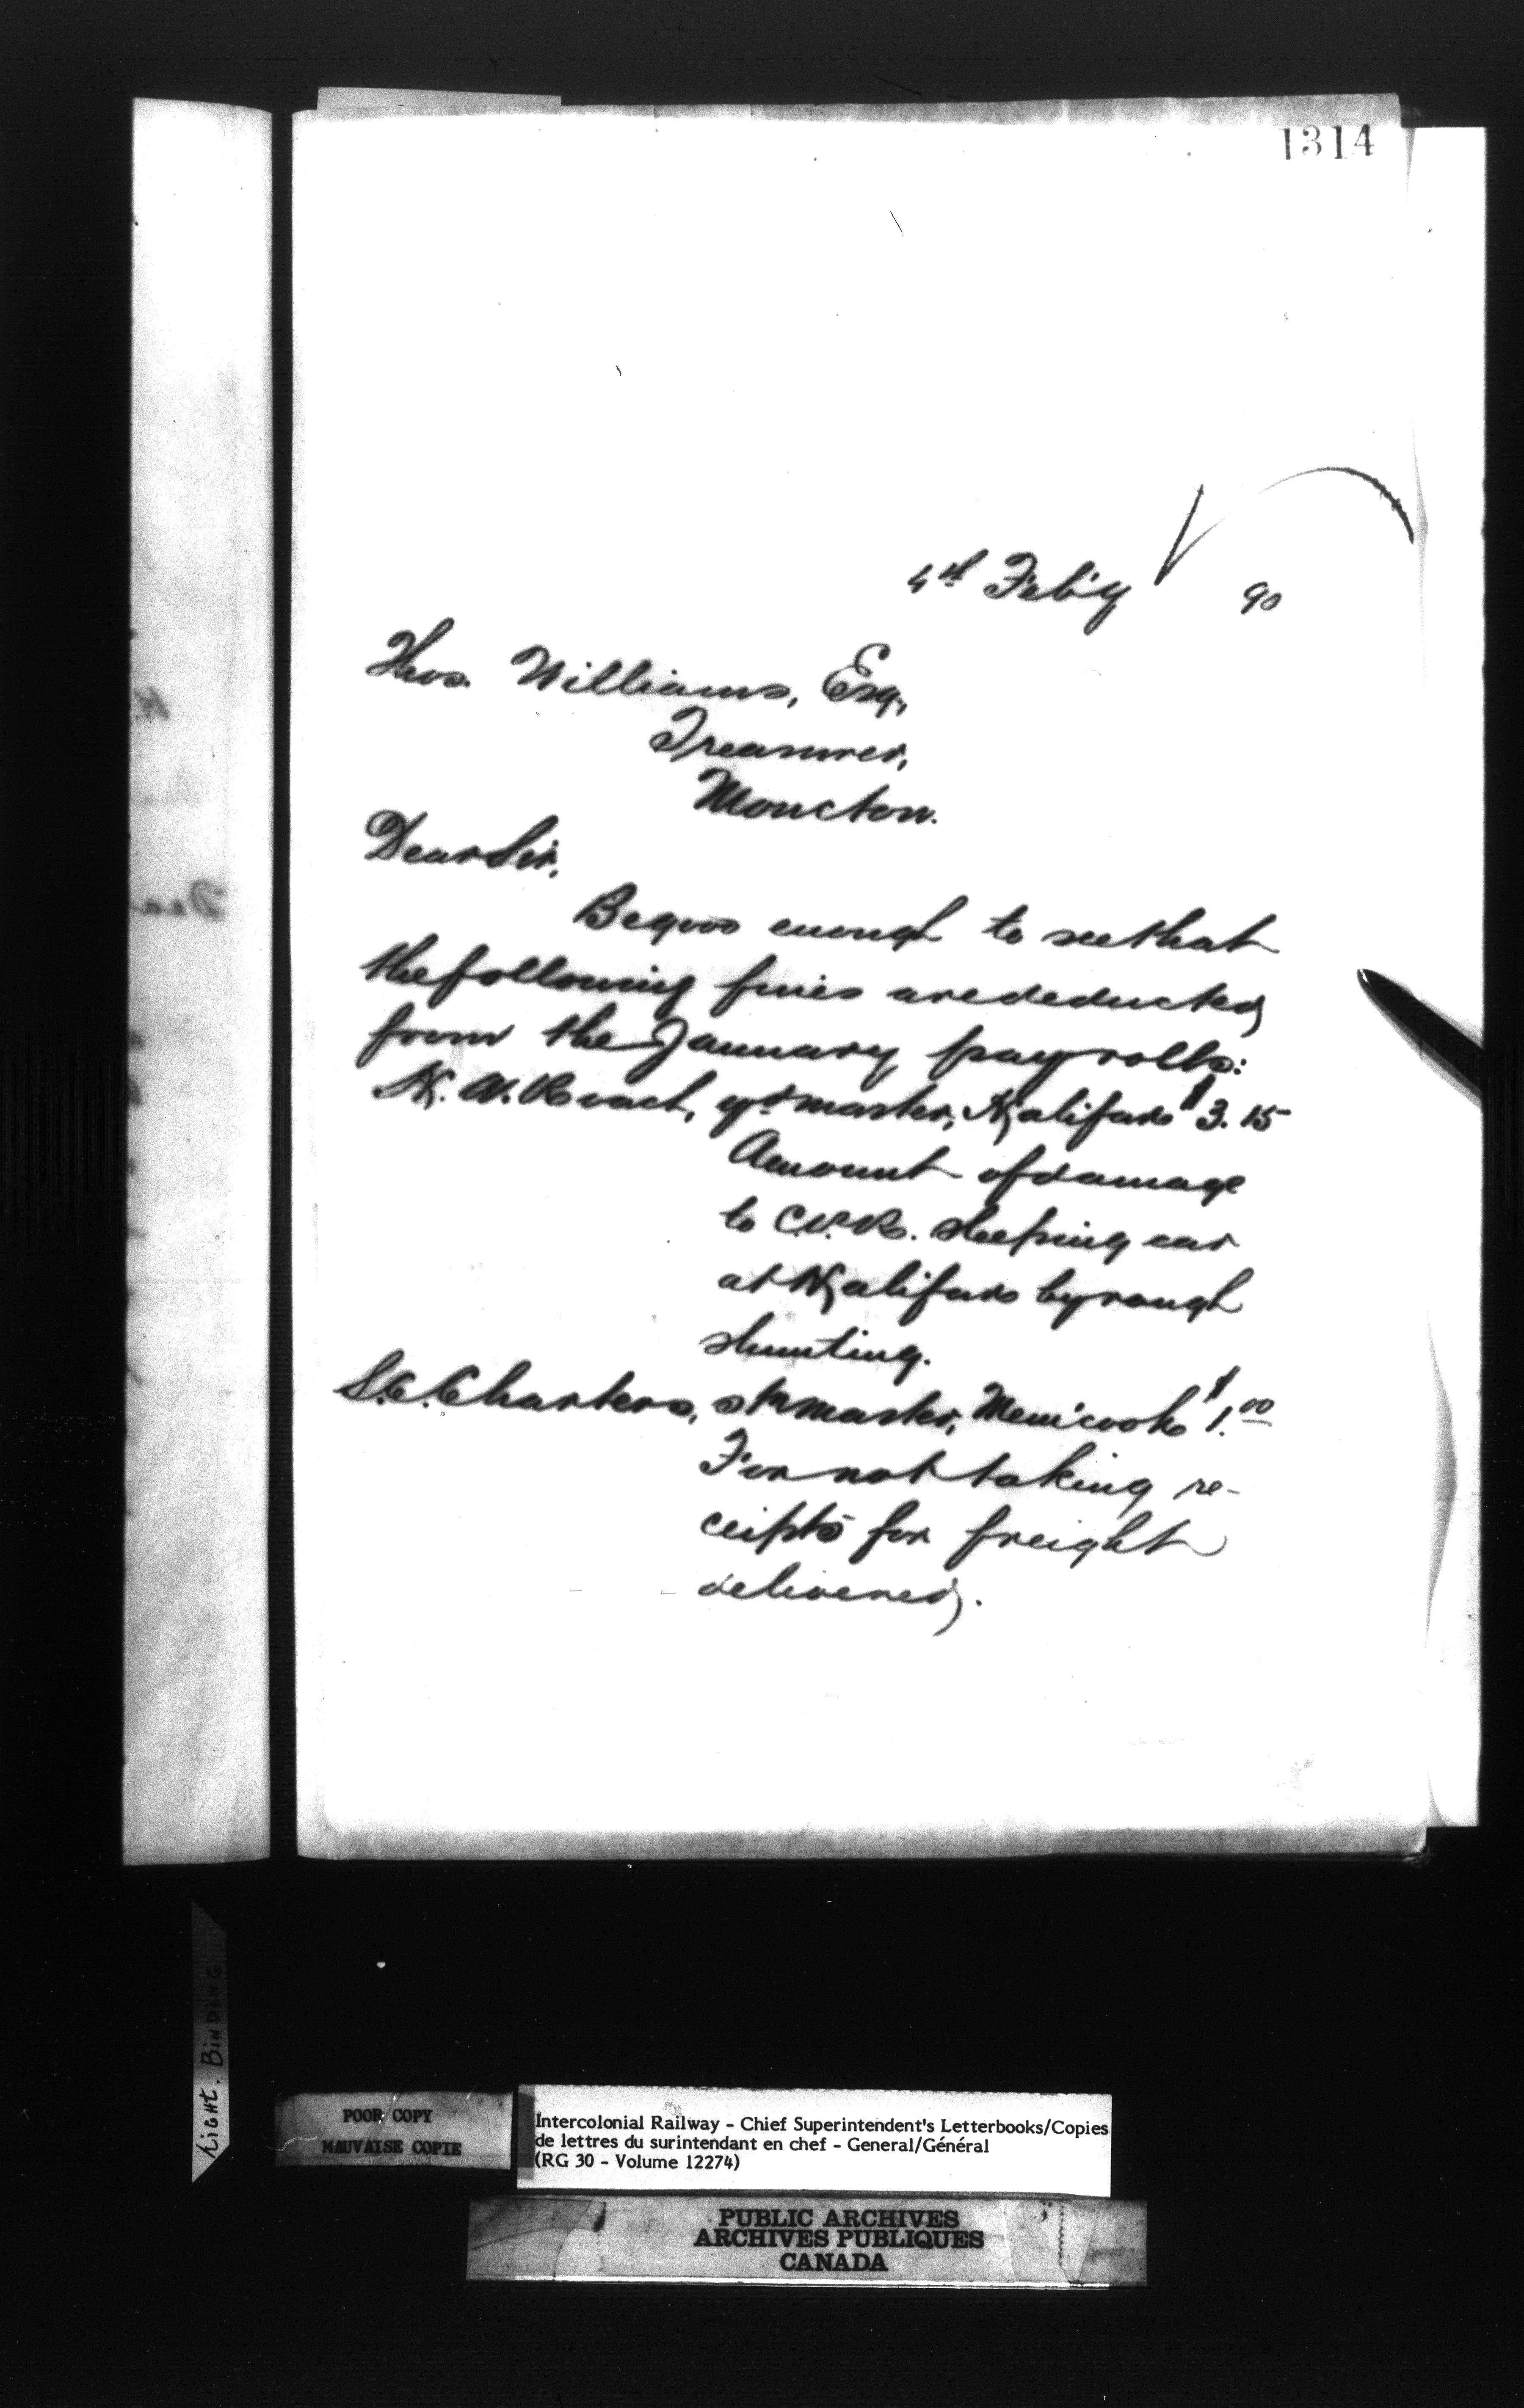 1314
4th Feb'y 90
Thos. Williams, Esq.,
Treasurer,
Moncton.
Dear Sir,
Be good enough to see that
the following fines are deducted
from the January pay rolls:
W. Roach, yd master, Halifax $3.15
Amount of damage
to C.P.R. sleeping car
at Halifax by rough
shunting.
S.C. Charters, stnmaster, Memramcook $1.00
For not taking re-
ceipts for freight
delivered.
Tight. BINDING.
POOR COPY
MAUVAISE COPIE
Intercolonial Railway - Chief Superintendent's Letterbooks/Copies
de lettres du surintendant en chef - General/Général
(RG 30 - Volume 12274)
PUBLIC ARCHIVES
ARCHIVES PUBLIQUES
CANADA